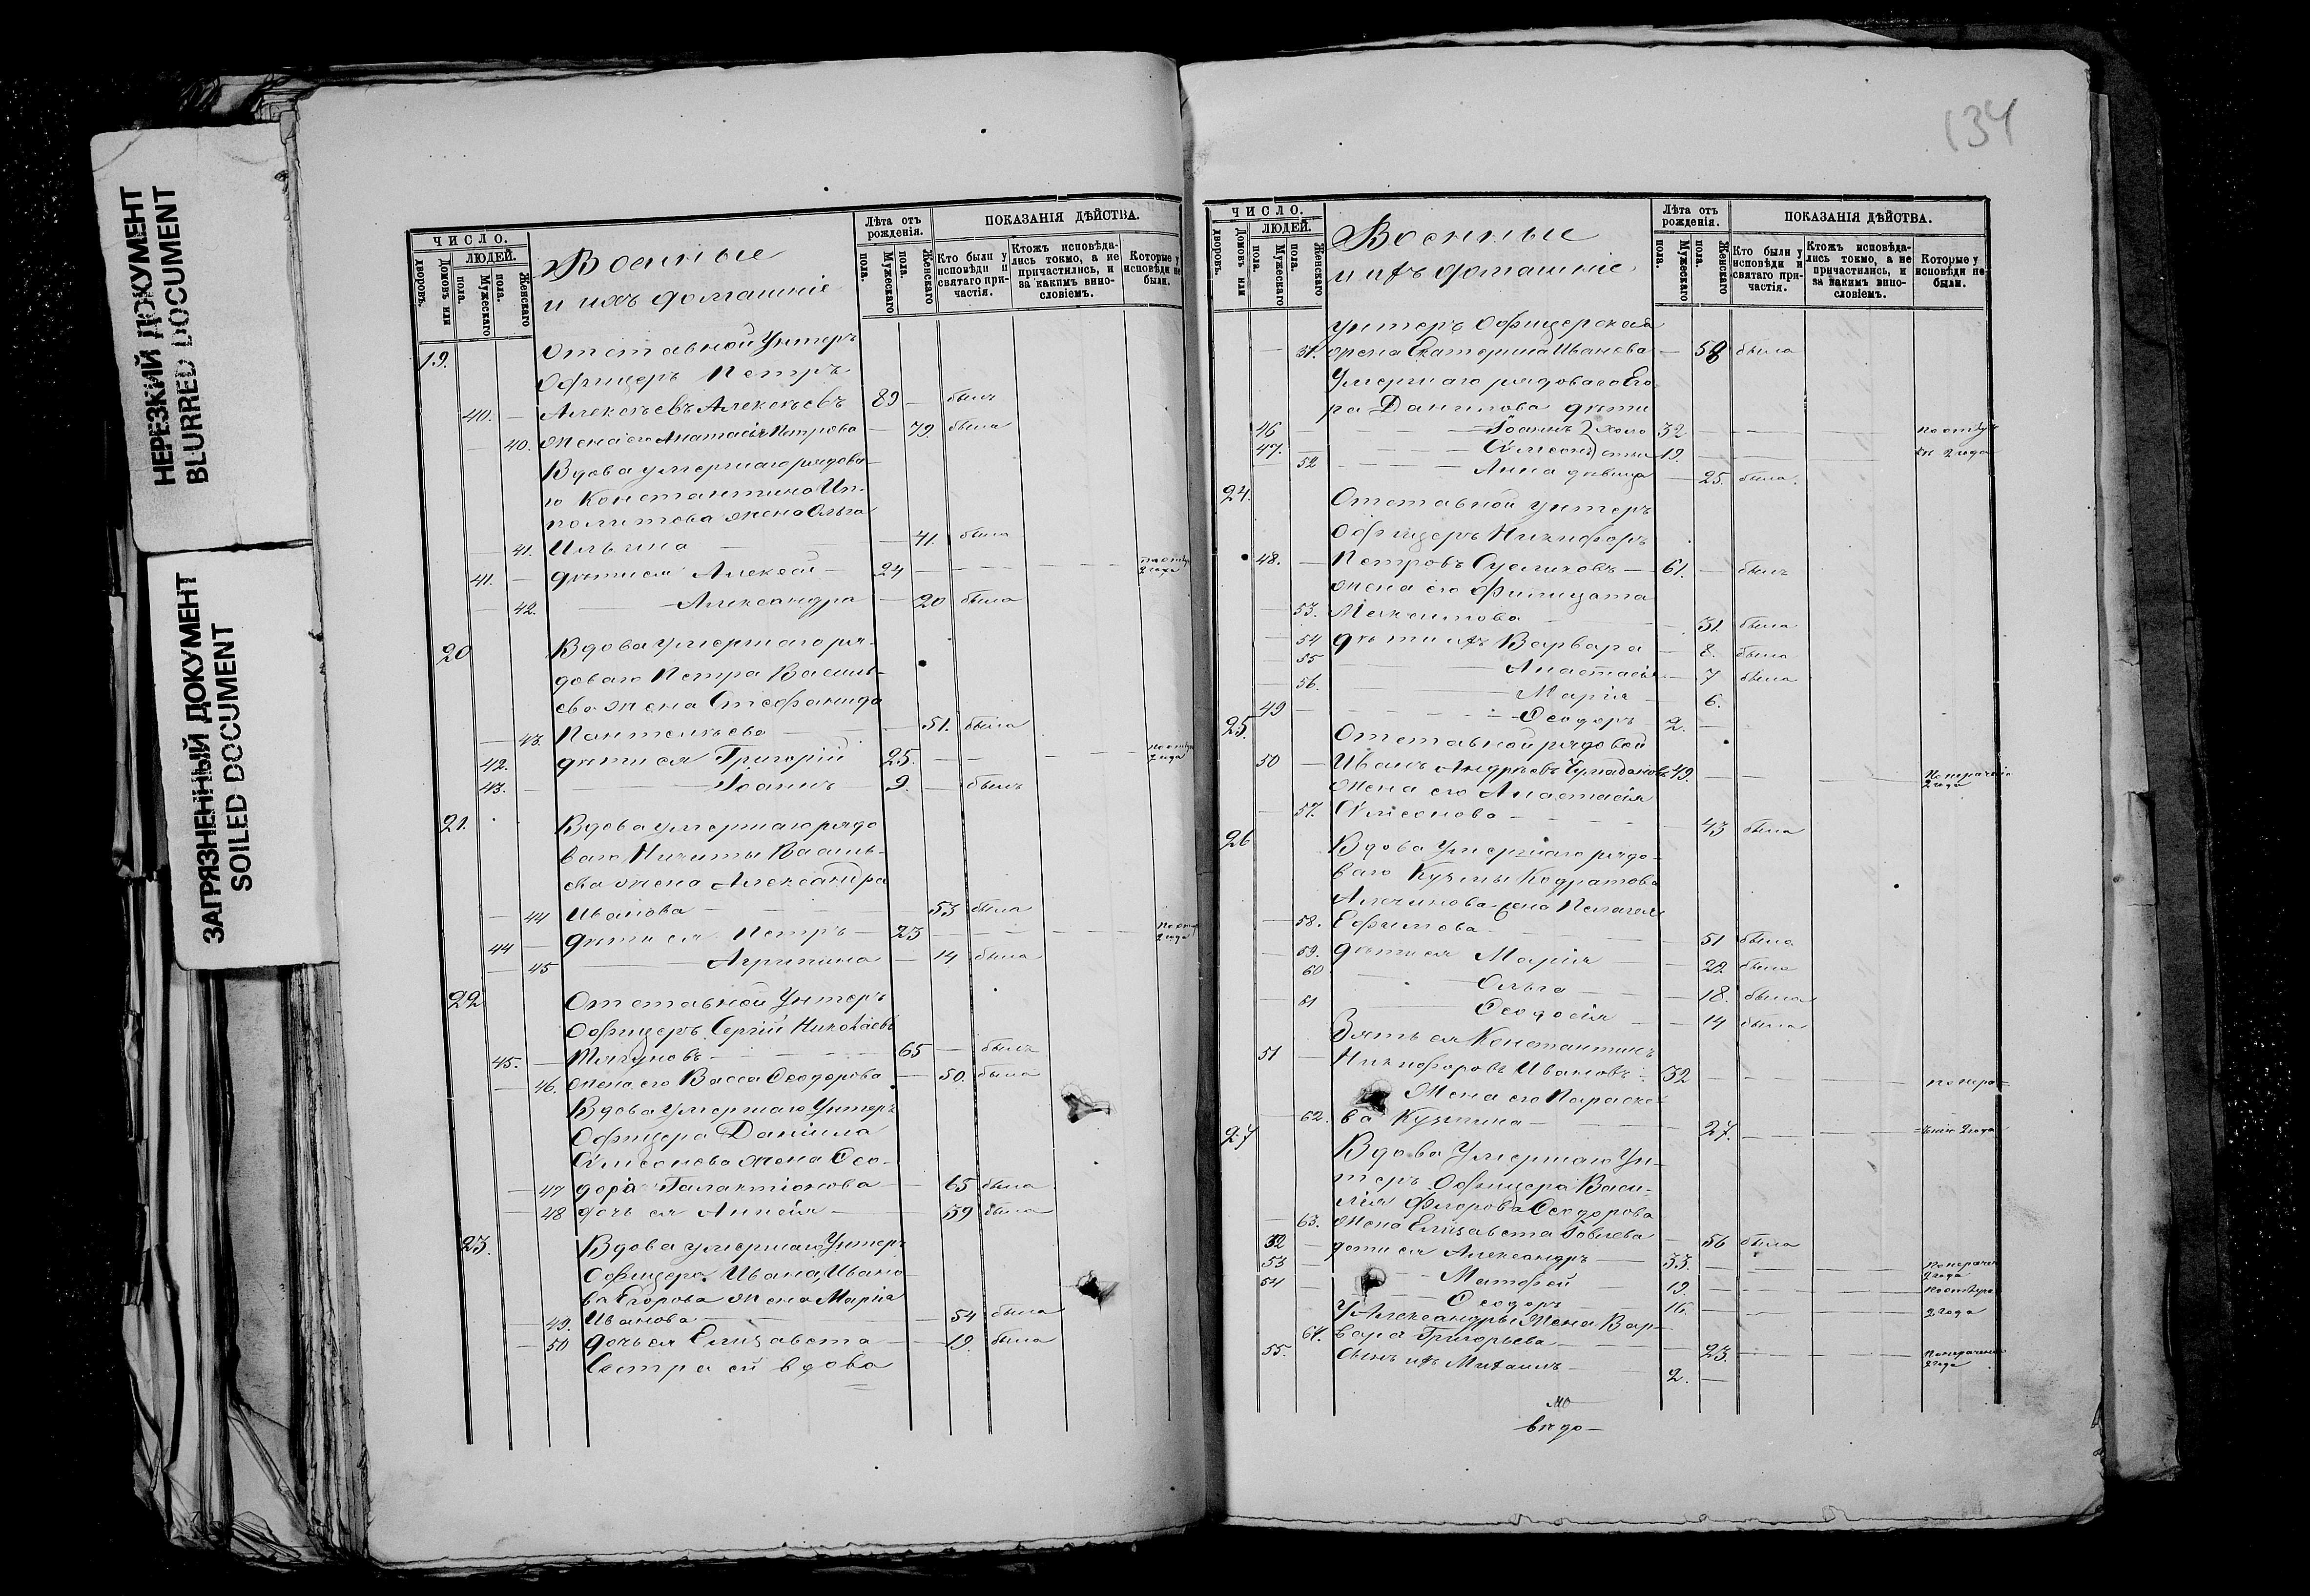 НЕРЕЗКИЙ ДОКУМЕНТ
BLURRED DOCUMENT
ЗАГРЯЗНЕННЫЙ ДОКУМЕНТ
SOILED DOCUMENT
ЧИСЛО.
ЛЮДЕЙ.
Домовъ или дворовъ.
Мужескаго пола.
Женскаго пола.
Военные
и ихъ домашніе
Лѣта отъ рожденія.
Мужескаго пола.
Женскаго пола.
ПОКАЗАНІЯ ДѢЙСТВА.
Кто были у исповѣди и святаго причастія.
Ктожъ исповѣдались токмо, а не причастились, и за какимъ винословіемъ.
Которые у исповѣди не были.
19. Отставной Унтеръ
Офицеръ Петръ
40. Алексѣевъ Алексѣевъ 89 былъ
40. жена его Анастасія Петрова 79. была
Вдова умершаго рядова-
го Константина Ип-
политова жена Ольга
41. Ильина 41. была
41. дѣти ея Алексѣй 24 2 года
42. Александра 20 была
20 Вдова умершаго ря-
доваго Петра Василь-
ева жена Стефанида
43. Пантелѣева 51. была
42. дѣти ея Григорій 25. 2 года
43. Іоаннъ 9. былъ
21. Вдова умершаго рядо
ваго Никиты Василь-
ева жена Александра
44 Иванова 53 была
44 дѣти ея Петръ 23 2 года
45 Агрипина 14 была
22 Отставной Унтеръ
Офицеръ Сергій Николаевъ
45. 65 былъ
46. жена его Васса Ѳеодорова 50. была
Вдова умершаго Унтеръ
Офицера Даніила
Симеонова жена Ѳео-
47 дора Галактіонова 65 была
48 дочь ея Анисія 39 была
23. Вдова умершаго Унтеръ
Офицера Ивана Ивано-
ва Егорова жена Марія
49. Иванова 54 была
50 дочь ея Елизавета 19. была
Сестра ей вдова
134
ЧИСЛО.
ЛЮДЕЙ.
Домовъ или дворовъ.
Мужескаго пола.
Женскаго пола.
Военные
и ихъ домашніе
Лѣта отъ рожденія.
Мужескаго пола.
Женскаго пола.
ПОКАЗАНІЯ ДѢЙСТВА.
Кто были у исповѣди и святаго причастія.
Ктожъ исповѣдались токмо, а не причастились, и за какимъ винословіемъ.
Которые у исповѣди не были.
унтеръ офицерская
51. жена Екатерина Иванова 58 была
Умершаго рядоваго Его
ра Данилова дѣти
46 Іоаннъ холо 32
47. Симеонъ сты 19. 2 года
52 Анна дѣвица 25. была.
24. Отставной унтеръ
Офицеръ Никифоръ
48. Петровъ 61. былъ
жена его Филицата
53. Максимова 31. была
54 дѣти ихъ Варвара 8. была
55 Анастасія 7 была
56. Марія 6.
49 Ѳеодоръ 2.
25. Отставной рядовой
50 Иванъ Андреевъ 49. 2 года
жена его Анастасія
57. Симеонова 43 была
26 Вдова умершаго рядо-
ваго Кузмы Кодратова
жена Пелагея
58. Ефимова 51 была
59. дѣти ея Марія 22 была
60 Ольга 18. была
61 Ѳеодосія 14 была
Зять ея Константинъ
51 Никифоровъ Ивановъ 32 по нера-
Жена его Параске-
62. ва Кузмина 27. =чѣнію 2 года
27 Вдова Умершаго Ун-
теръ Офицера Васи-
лія Ѳеодорова
63. жена Елизавета 56 была
52 дѣти ея Александръ 33. 2 года
53 Матфей 19.
54 Ѳеодоръ 16. 2 года
У Александра жена Вар-
64. вара Григорьева 23. 2 года
55. Сынъ ихъ Михаилъ 2.